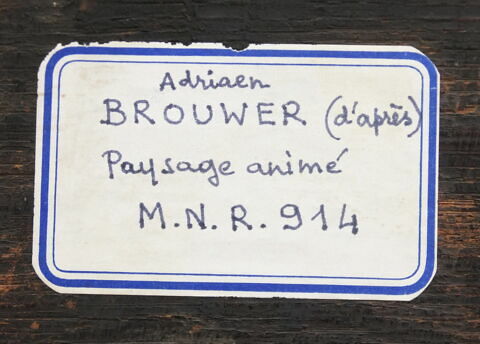 Adriaen
BROUWER (d'après)
Paysage animé
M.N.R. 914